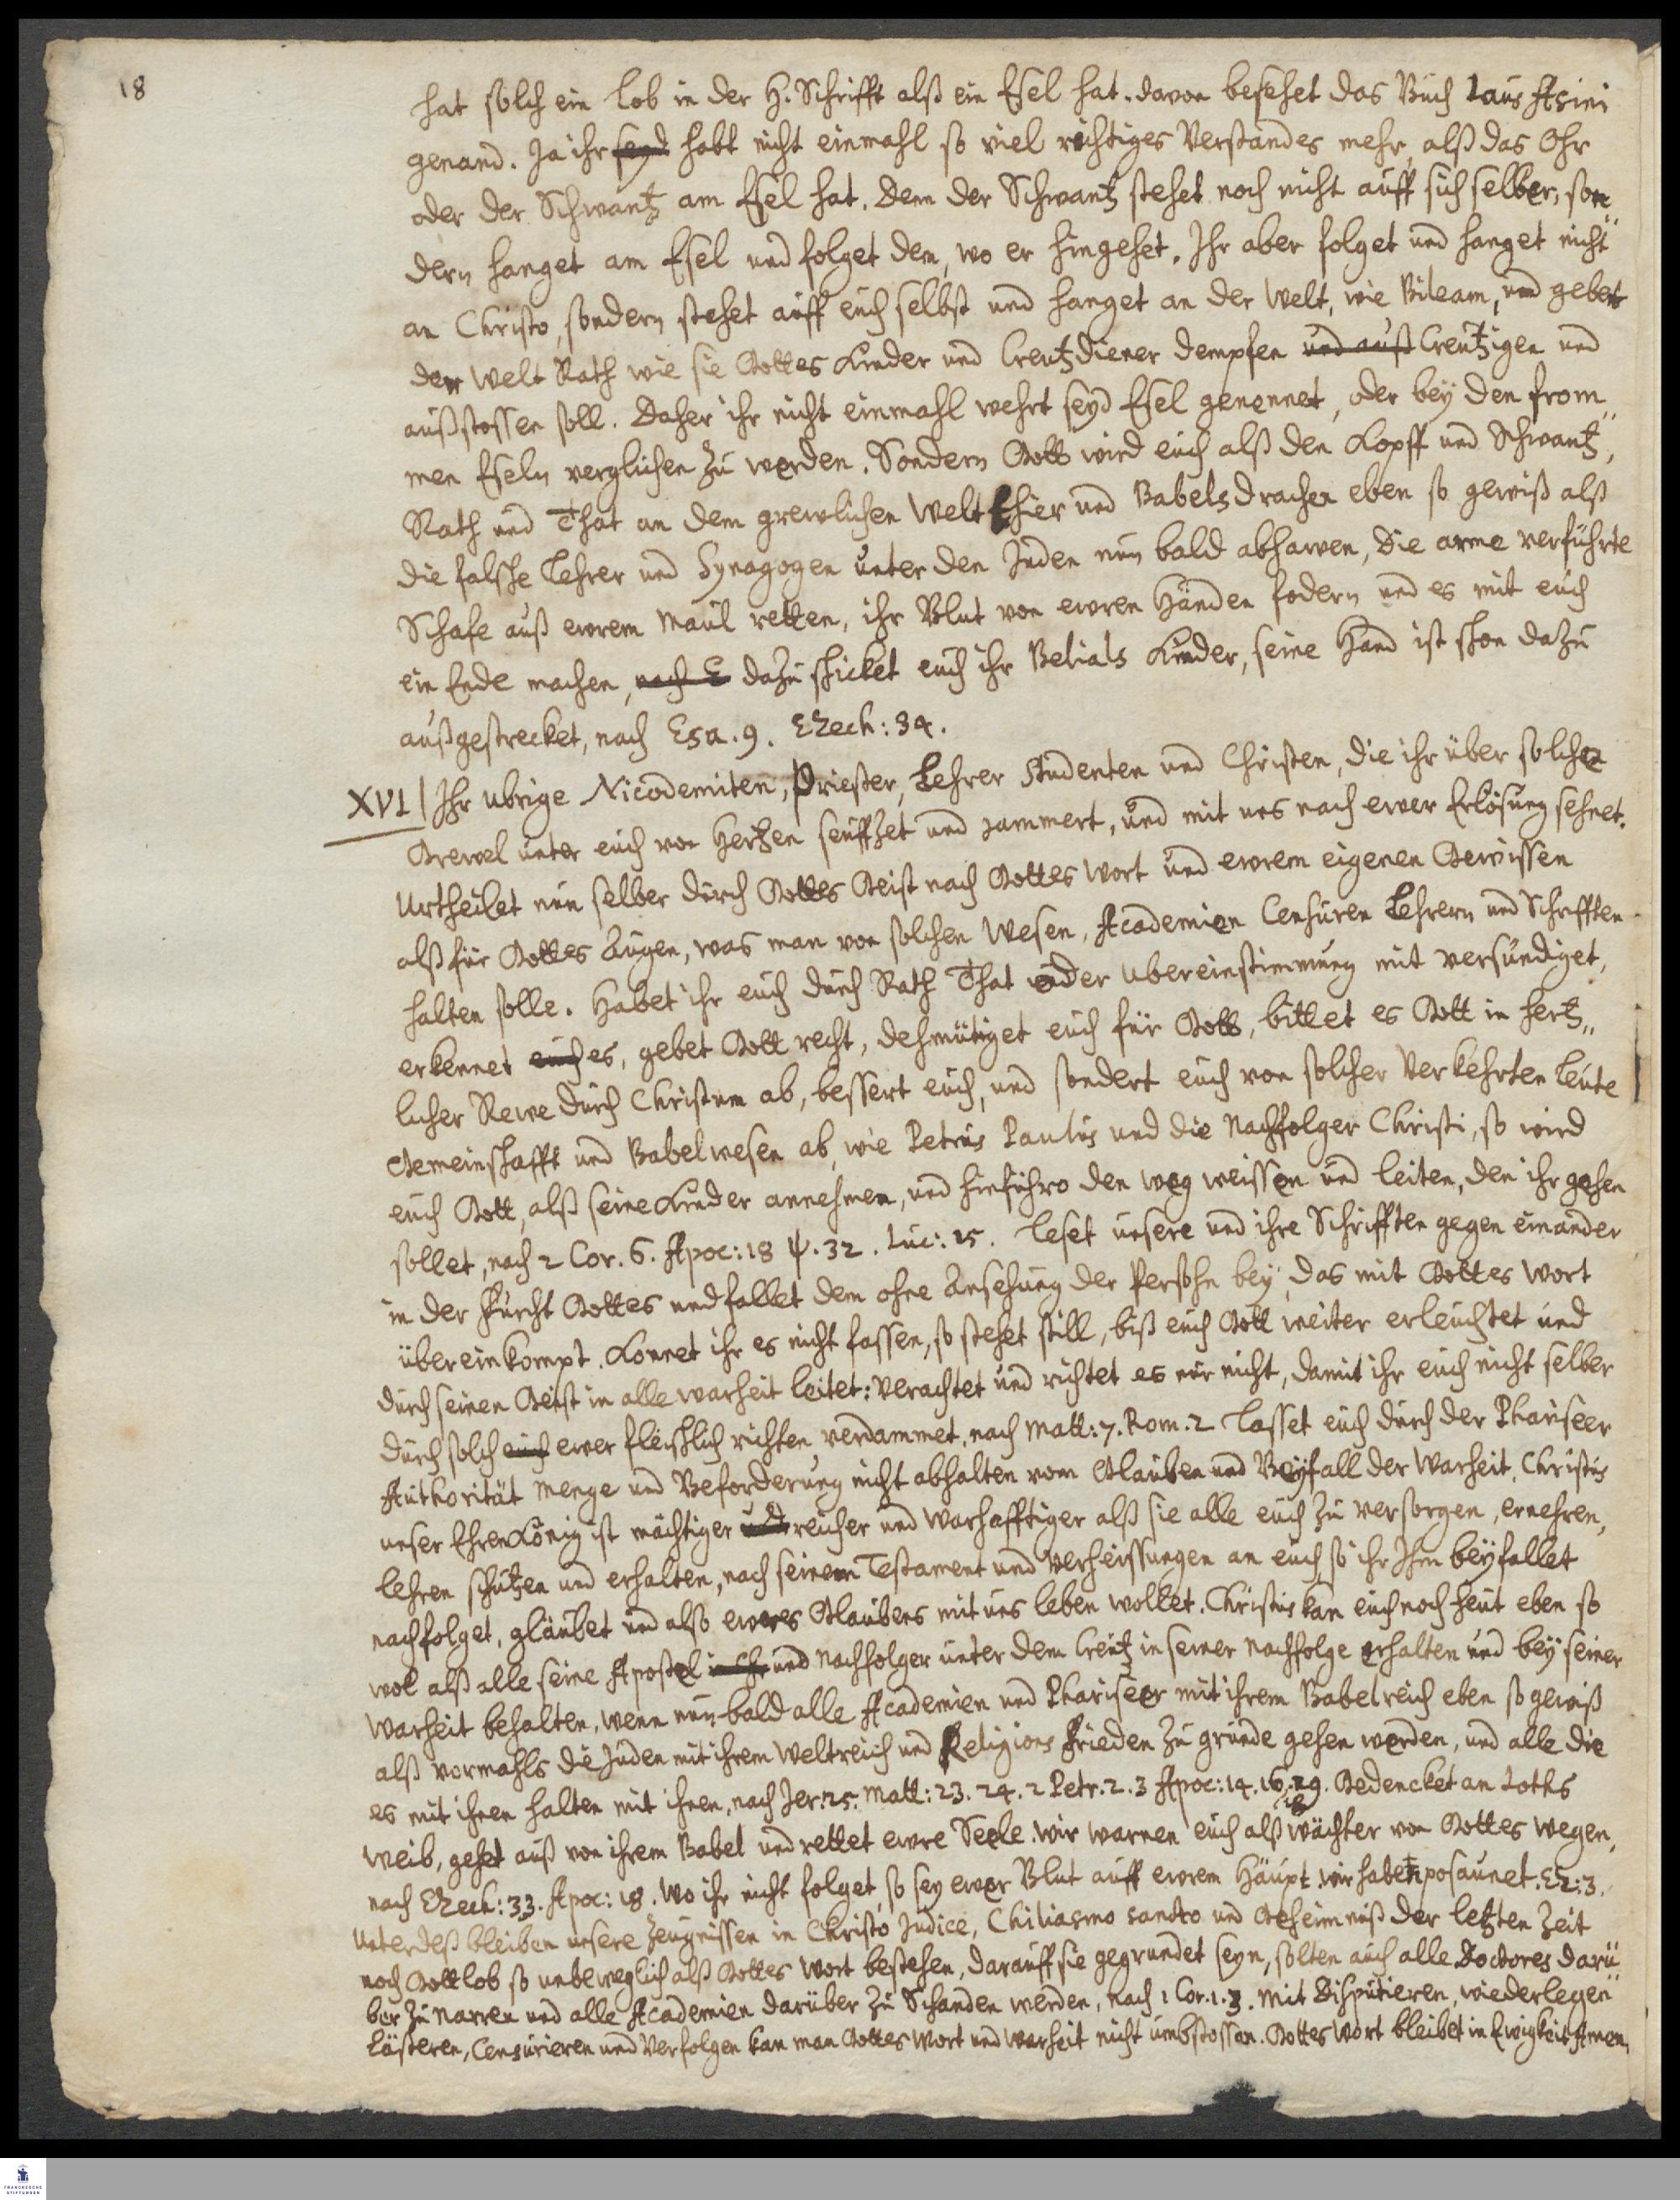 18
hat solch ein lob in der H. Schrifft alß ein Esel hat. davon besehet das Buch laus Asini
genand. Ja ihr seyd habt nicht einmahl so viel richtiges Verstandes mehr, alß das Ohr
oder der Schwantz am Esel hat. Denn der Schwantz stehet noch nicht auff sich selber, son„
dern hanget am Esel und folget dem, wo er hingehet. Ihr aber folget und hanget nicht
an Christo, sondern stehet auff euch selbst und hanget an der Welt, wie Bileam, und gebet
der Welt Rath wie sie Gottes Kinder und Creutzdiener dempfen und auß Creutzigen und
außstossen soll. Daher ihr nicht einmahl wehrt seyd Esel genennet, oder bey den from„
men Eseln verglichen zu werden. Sondern Gott wird euch alß den Kopff und Schwantz,
Rath und That an dem grewlichen Welt Thier und Babels drachen eben so gewiß alß
die falsche Lehrer und Synagogen unter den Juden nun bald abhawen, die arme verführte
Schafe auß ewrem Maul retten, ihr Blut von ewren Händen fodern und es mit euch
ein Ende machen, nach E dazu schicket euch ihr Belials Kinder, seine Hand ist schon dazu
außgestrecket, nach Esa. 9. Ezech: 34.
XVI Ihr ubrige Nicodemiten, Priester, Lehrer Studenten und Christen, die ihr über solchen
Grewel unter euch von Hertzen seuffzet und jammert, und mit uns nach ewer Erlösung sehnet.
Urtheilet nun selber durch Gottes Geist nach Gottes Wort und ewrem eigenen Gewissen
alß für Gottes Augen, was man von solchen Wesen, Academien Censuren Lehrern und Schrifften
halten solle. Habet ihr euch durch Rath That oder Ubereinstimmung mit versündiget,
erkennet euch es, gebet Gott recht, dehmütiget euch für Gott, bittet es Gott in hertz„
licher Rewe durch Christum ab, bessert euch, und sondert euch von solcher Verkehrten Leute
Gemeinschafft und Babelwesen ab, wie Petrus Paulus und die Nachfolger Christi, so wird
euch Gott, alß seine Kinder annehmen, und hinführo den weg weissen und leiten, den ihr gehen
sollet, nach 2 Cor. 6. Apoc: 18 ψ. 32. Luc: 15. Leset unsere und ihre Schrifften gegen einander
in der Furcht Gottes und fallet dem ohne Ansehung der Persohn bey, das mit Gottes Wort
übereinkompt. Konnet ihr es nicht fassen, so stehet still, biß euch Gott weiter erleuchtet und
durch seinen Geist in alle warheit leitet: Verachtet und richtet es nur nicht, damit ihr euch nicht selber
durch solch euch ewer fleischlich richten verdammet, nach Matt: 7. Rom. 2 Lasset euch durch der Phariseer
Authorität Menge und Beforderung nicht abhalten vom Glauben und Beyfall der Warheit. Christus
unser Ehren König ist mächtiger und reicher und Warhafftiger alß sie alle euch zu versorgen, ernehren,
lehren schützen und erhalten, nach seinem Testament und Verheissungen an euch, so ihr Ihm beyfallet
nachfolget, gläubet und also ewres Glaubens mit uns leben wollet. Christus kan euch noch heut eben so
wol alß alle seine Apostel und Nachfolger unter dem Creutz in seiner Nachfolge erhalten und bey seiner
Warheit behalten, wenn nun bald alle Academien und Phariseer mit ihrem Babelreich eben so gewiß
alß vormahls die Juden mit ihrem Weltreich und Religions Frieden zu grunde gehen werden, und alle die
es mit ihnen halten mit ihnen, nach Jer: 25. Matt: 23. 24. 2 Petr. 2. 3 Apoc: 14. 16. 19. Gedencket an Loths
Weib, gehet auß von ihrem Babel und rettet ewre Seele. Wir warnen euch alß Wächter von Gottes wegen,
nach Ezech: 33. Apoc: 18. Wo ihr nicht folget, so sey ewer Blut auff ewrem Häupt wir haben posaunet. Ez: 3.
Unterdeß bleiben unsere Zeugnissen in Christo Judice, Chiliasmo sancto und Geheimniß der letzten Zeit
noch Gottlob so unbeweglich alß Gottes Wort bestehen, darauff sie gegrundet seyn, solten auch alle Doctores darü„
ber zu Narren und alle Academien darüber zu Schanden werden, nach 1 Cor. 1. 3. Mit Disputieren, wiederlegen
Lästeren, Censurieren und Verfolgen kan man Gottes Wort und Warheit nicht umbstossen. Gottes Wort bleibet in Ewigkeit Amen.
FRANCKESCHE
STIFTUNGEN